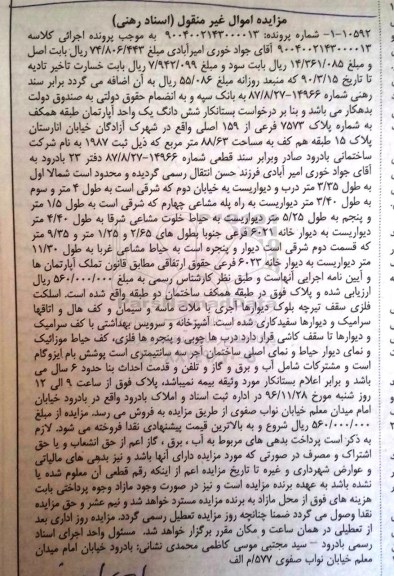 مزایده اموال غیر منقول (اسناد رهنی)
۱۰۵۹۲-۱- شماره پرونده: ۹۰۰۴۰۰۲۱۴۳۰۰۰۰۱۳ به موجب پرونده اجرائی کلاسه
۹۰۰۴۰۰۲۱۴۳۰۰۰۰۱۳ آقای جواد خوری امیرآبادی مبلغ ۷۴/۸۰۶/۴۴۳ ریال بابت اصل
و مبلغ ۱۴/۳۶۱/۰۸۵ ریال بابت سود و مبلغ ۷/۹۴۲/۰۹۹ ریال بابت خسارت تاخیر تادیه
تا تاریخ ۹۰/۳/۱۵ که منبعد روزانه مبلغ ۵۵/۰۸۶ ریال به آن اضافه می گردد برابر سند
رهنی شماره ۱۴۹۶۶-۸۷/۸/۲۷ به بانک سپه و به انضمام حقوق دولتی به صندوق دولت
بدهکار می باشد و بنا بر درخواست بستانکار شش دانگ یک واحد آپارتمان طبقه همکف
به شماره پلاک ۷۵۷۳ فرعی از ۱۵۹ اصلی واقع در شهرک آزادگان خیابان انارستان
پلاک ۱۵ طبقه هم کف به مساحت ۸۸/۶۳ متر مربع که ذیل ثبت ۱۹۸۷ به نام شرکت
ساختمانی بادرود صادر وبرابر سند قطعی شماره ۱۴۹۶۶-۸۷/۸/۲۷ دفتر ۲۳ بادرود به
آقای جواد خوری امیر آبادی فرزند حسن انتقال رسمی گردیده و محدود است شمالا اول
به طول ۳/۳۵ متر درب و دیواریست به خیابان دوم که شرقی است به طول ۴ متر و سوم
به طول ۳/۴۰ متر دیواریست به راه پله مشاعی چهارم که شرقی است به طول ۱/۵ متر
و پنجم به طول ۵/۲۵ متر دیواریست به حیاط خلوت مشاعی شرقا به طول ۴/۴۰ متر
دیواریست به دیوار خانه ۶۰۲۱ فرعی جنوبا بطول های ۲/۶۵ و ۱/۲۵ متر و ۹/۳۵ متر
که قسمت دوم شرقی است دیوار و پنجره است به حیاط مشاعی غربا به طول ۱۱/۳۰
متر دیواریست به دیوار خانه ۶۰۲۳ فرعی حقوق ارتفاقی مطابق قانون تملک آپارتمان ها
و آیین نامه اجرایی آنهاست و طبق نظر کارشناس رسمی به مبلغ ۵۶۰/۰۰۰/۰۰۰ ریال
ارزیابی شده و پلاک فوق در طبقه همکف ساختمان دو طبقه واقع شده است. اسلکت
فلزی سقف تیرچه بلوک دیوارها آجری با ملات ماسه و سیمان و کف هال و اتاقها
سرامیک و دیوارها سفیدکاری شده است. آشپزخانه و سرویس بهداشتی با کف سرامیک
و دیوارها تا سقف کاشی قرار دارد درب ها چوبی و پنجره ها فلزی، کف حیاط موزائیک
و نمای دیوار حیاط و نمای اصلی ساختمان آجر سه سانتیمتری است پوشش بام ایزوگام
است و مشترکات شامل آب و برق و گاز و تلفن و قدمت احداث بنا حدود ۶ سال می
باشد و برابر اعلام بستانکار مورد وثیقه بیمه نمیباشد، پلاک فوق از ساعت ۹ الی ۱۲
روز شنبه مورخ ۹۶/۱۱/۲۸ در اداره ثبت اسناد و املاک بادرود واقع در بادرود خیابان
امام میدان معلم خیابان نواب صفوی از طریق مزایده به فروش می رسد. مزایده از مبلغ
۵۶۰/۰۰۰/۰۰۰ ریال شروع و به بالاترین قیمت پیشنهادی نقدا فروخته می شود. لازم
به ذکر است پرداخت بدهی های مربوط به آب ، برق ، گاز اعم از حق انشعاب و یا حق
اشتراک و مصرف در صورتی که مورد مزایده دارای آنها باشد و نیز بدهی های مالیاتی
و عوارض شهرداری و غیره تا تاریخ مزایده اعم از اینکه رقم قطعی آن معلوم شده یا
نشده باشد به عهده برنده مزایده است و نیز در صورت وجود مازاد وجوه پرداختی بابت
هزینه های فوق از محل مازاد به برنده مزایده مسترد خواهد شد و نیم عشر و حق مزایده
نقدا وصول می گردد ضمنا چنانچه روز مزایده تعطیل رسمی گردد. مزایده روز اداری بعد
از تعطیلی در همان ساعت و مکان مقرر برگزار خواهد شد. مسئول واحد اجرای اسناد
رسمی بادرود – سید مجتبی موسی کاظمی محمدی نشانی: بادرود خیابان امام میدان
معلم خیابان نواب صفوی ۵۷۷/م الف